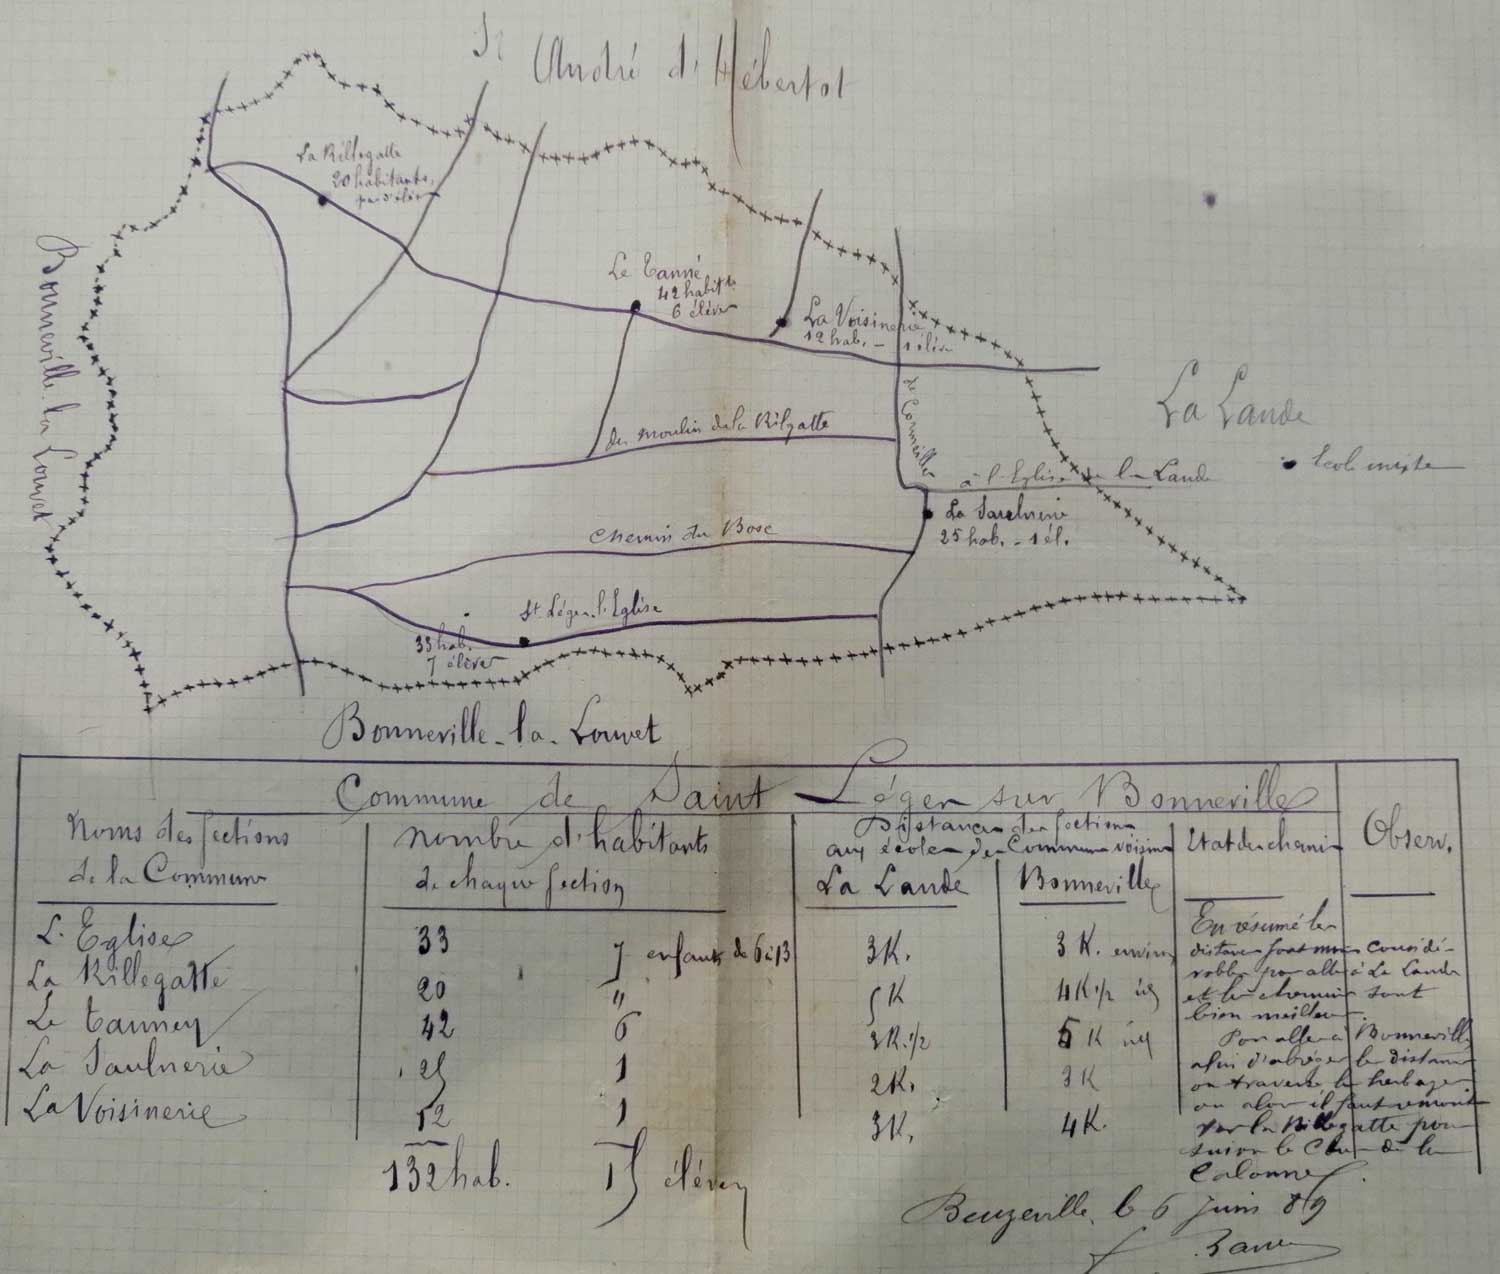 St André d'Hébertot
La Rillegatte
20 habitants,
pas d'élèv
Le Tanné
42 habits
6 élèves
La Voisinerie
12 hab. - 1 élèv
Bonneville la Louvet
La Lande
Ecole mixte
de Cormeilles
du Moulin de la Rilgatte
à l'Eglise de la Lande
La Saulnerie
25 hab. - 1 él.
Chemin du Bosc
St Léger-l'Eglise
33 hab.
7 élèves
Bonneville-la-Louvet
Commune de Saint Léger sur Bonneville
Noms des sections
de la Commune
Nombre d'habitants
de chaque section
Distances des sections
aux écoles des Communes voisines
La Lande
Bonneville
Etat des chemins
Observ.
L'Eglise 33 7 enfants de 6 à 13 3K. 3K. environ
La Rillegatte 20 " 5K 4K 1/2 id
Le Tanney 42 6 3K.1/2 5K id
La Saulnerie 25 1 2K. 3K
La Voisinerie 12 1 3K. 4K.
132 hab. 15 élèves
En résumé les
distances sont moins considé-
rables pour aller à La Lande
et les chemins sont
bien meilleurs.
Pour aller à Bonneville
afin d'abréger les distances
on traverse les herbages
ou alors il faut remonter
vers la Rillegatte pour
suivre le Chin de la
Calonne.
Beuzeville, le 6 juin 89